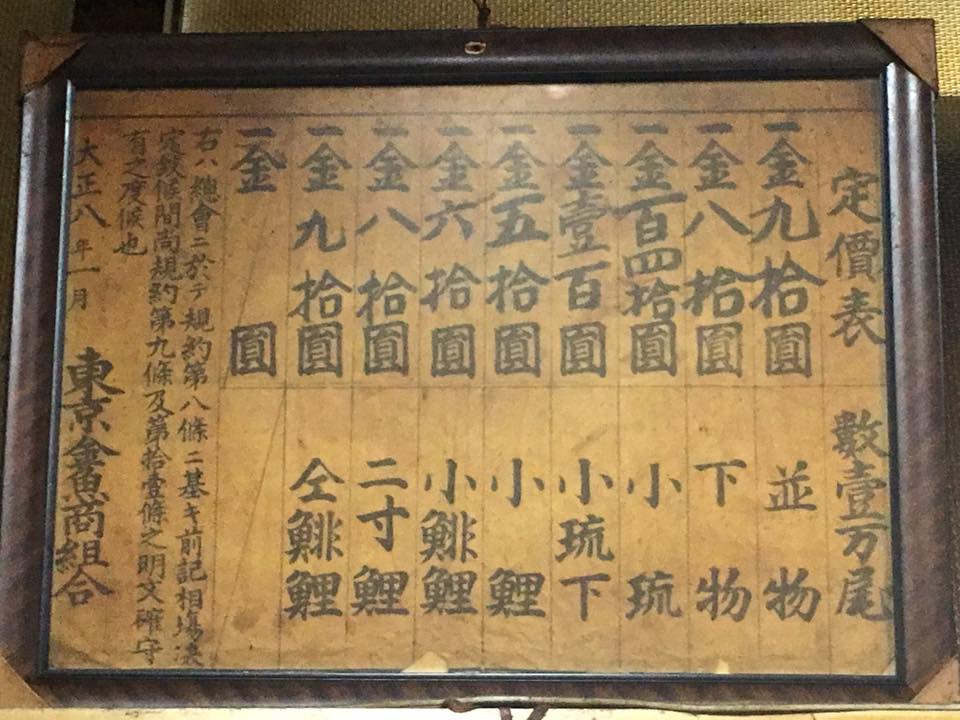 定價表 數壹万尾
一金九拾圓 並物
一金八拾圓 下物
一金百四拾圓 小琉
一金壹百圓 小琉下
一金五拾圓 小鯉
一金六拾圓 小鯡鯉
一金八拾圓 二寸鯉
一金九拾圓 仝鯡鯉
一金 圓
右ハ總會ニ於テ規約第八條ニ基キ前記相場決
定致候間尚規約第九條及第拾壹條之明文確守
有之度候也
大正八年一月
東京金魚商組合